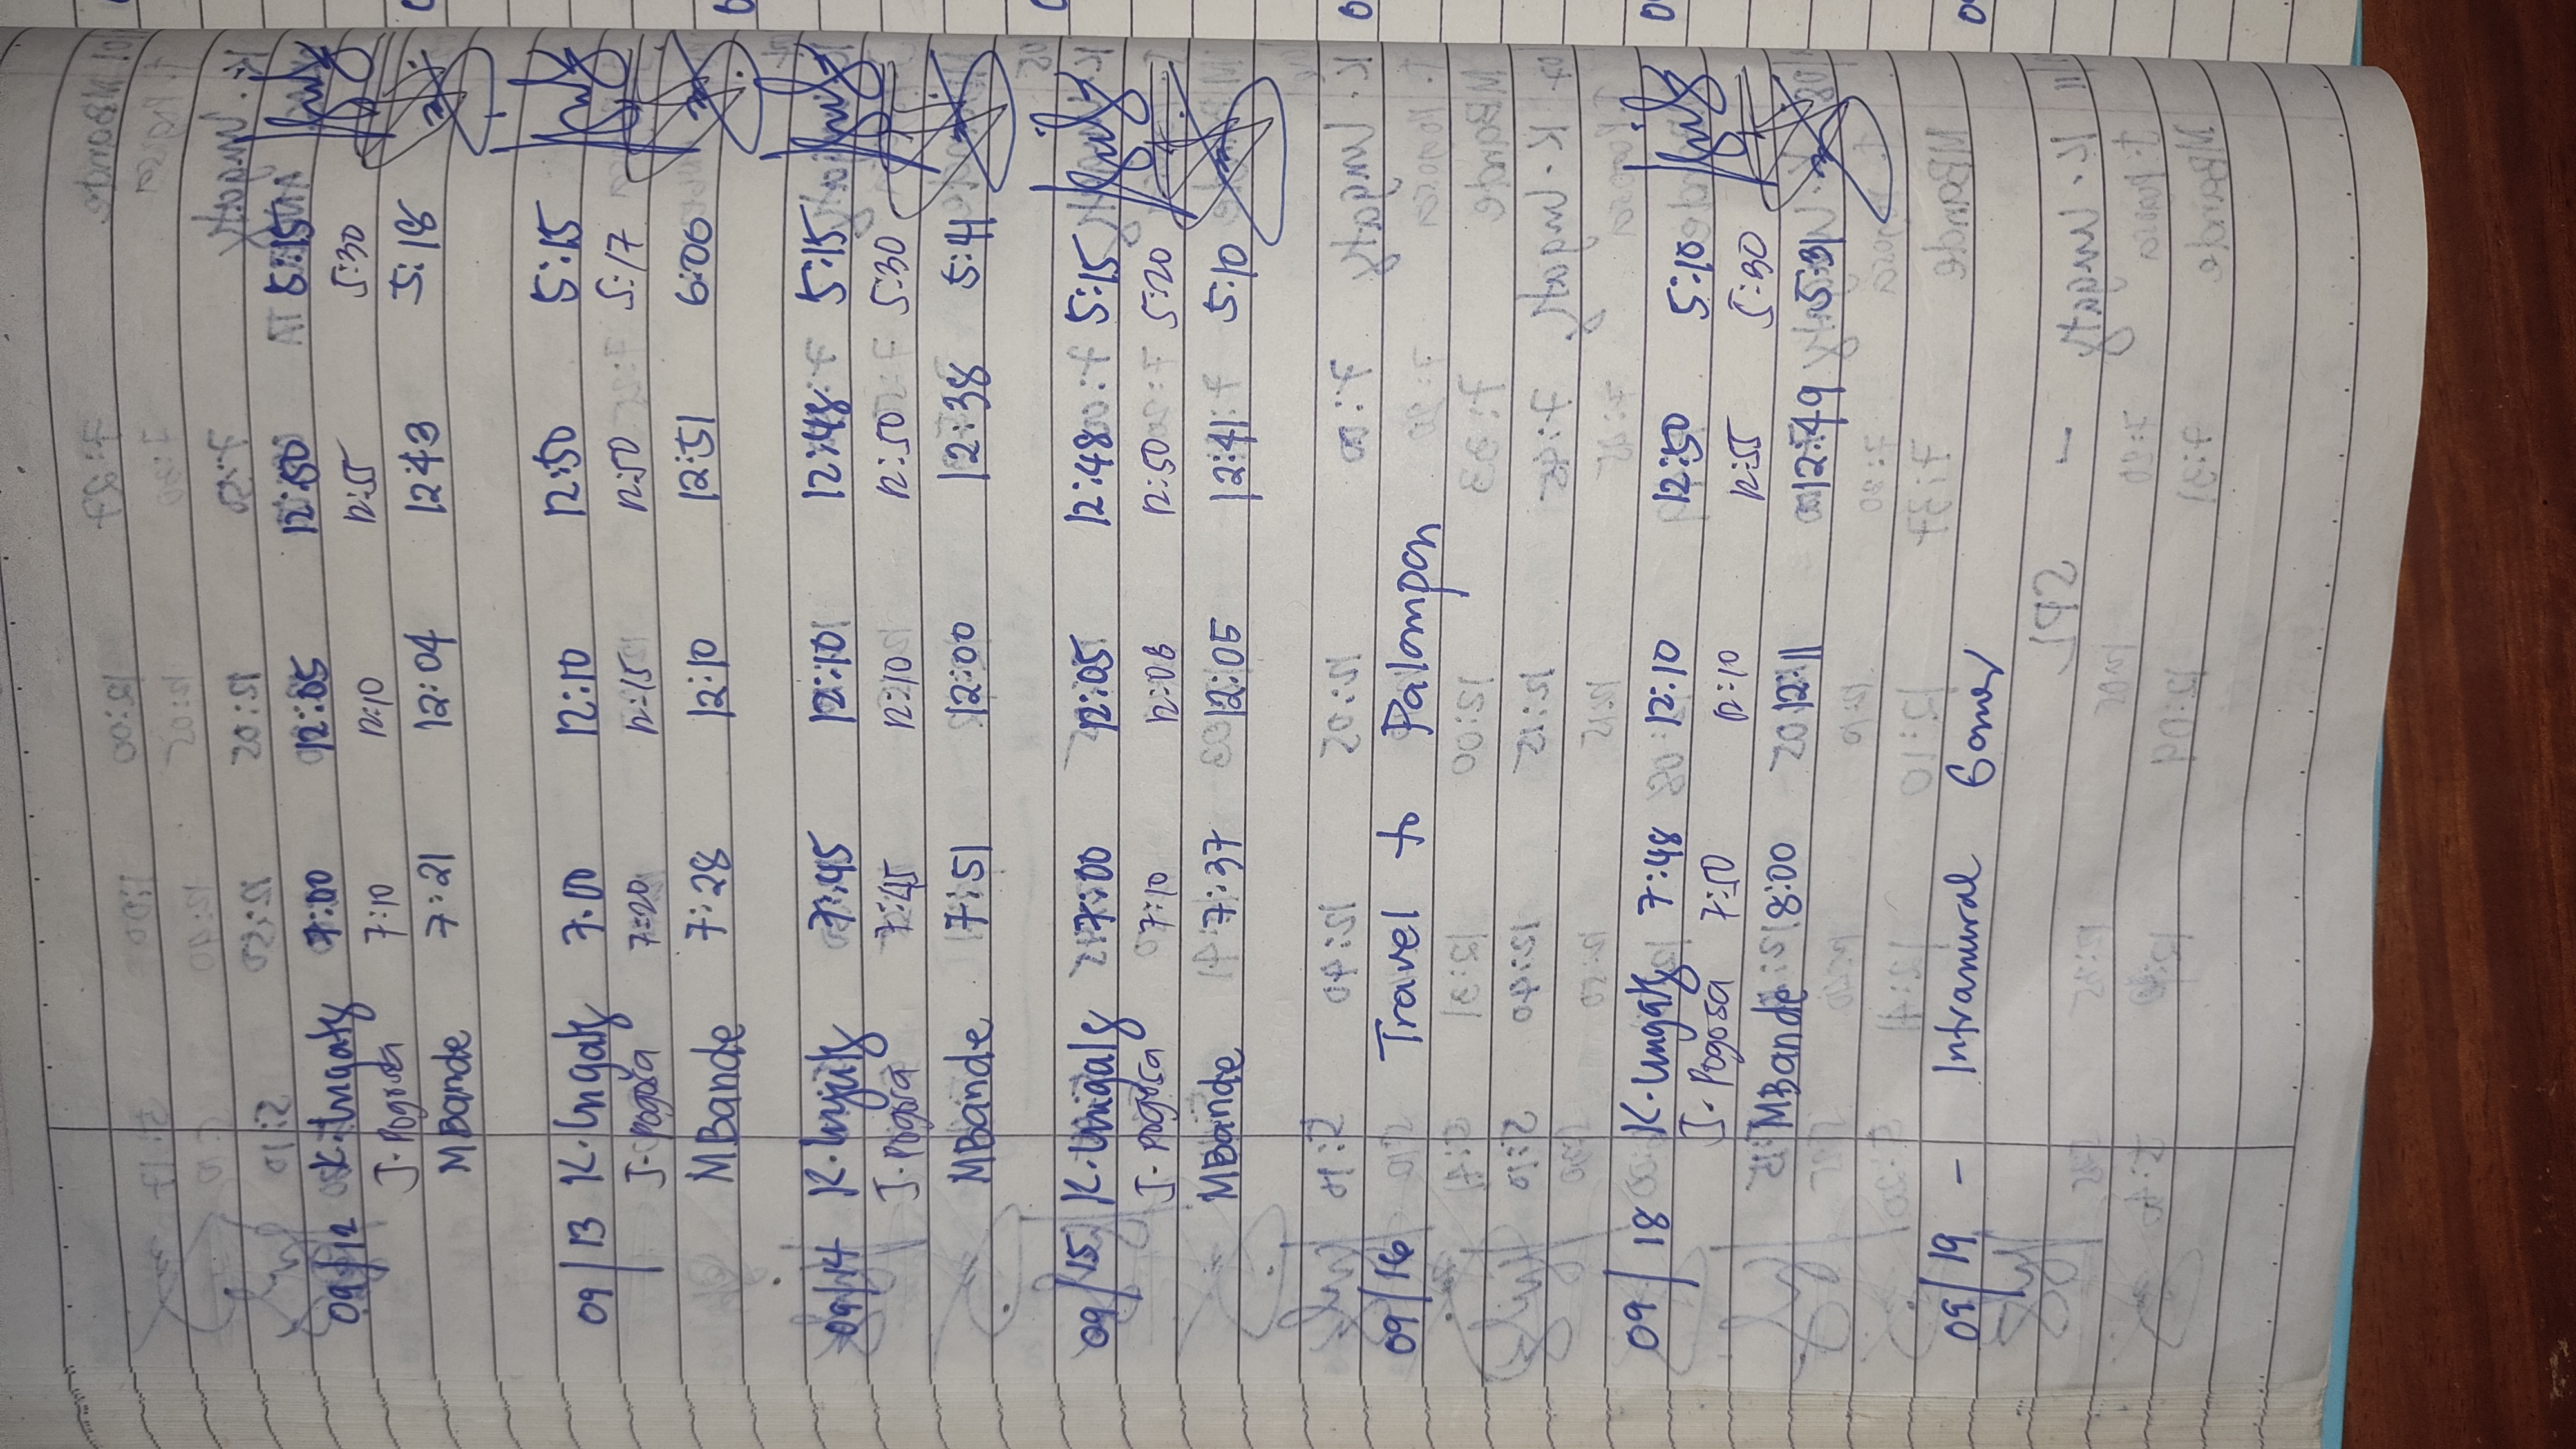 09/12 K. Ungab 7:00 12:05 12:50 5:15
J. Pogosa 7:10 12:10 12:55 5:30
MBande 7:21 12:04 12:43 5:18
09/13 K. Ungab 7:00 12:10 12:50 5:15
J. Pogosa 7:20 12:15 12:50 5:17
MBande 7:28 12:10 12:51 6:06
09/14 K. Ungab 7:45 12:10 12:48 5:15
J. Pogosa 7:45 12:10 12:50 5:30
MBande 7:51 12:00 12:38 5:41
09/15 K. Ungab 7:00 12:05 12:48 5:15
J. Pogosa 7:10 12:08 12:50 5:20
MBande 7:37 12:05 12:41 5:10
09/16 Travel to Palompon
09/18 K. Ungab 7:48 12:10 12:50 5:10
J. Pogosa 7:50 12:10 12:55 5:30
MBande 8:00 12:11 12:49 5:31
09/19 - Intramural Games